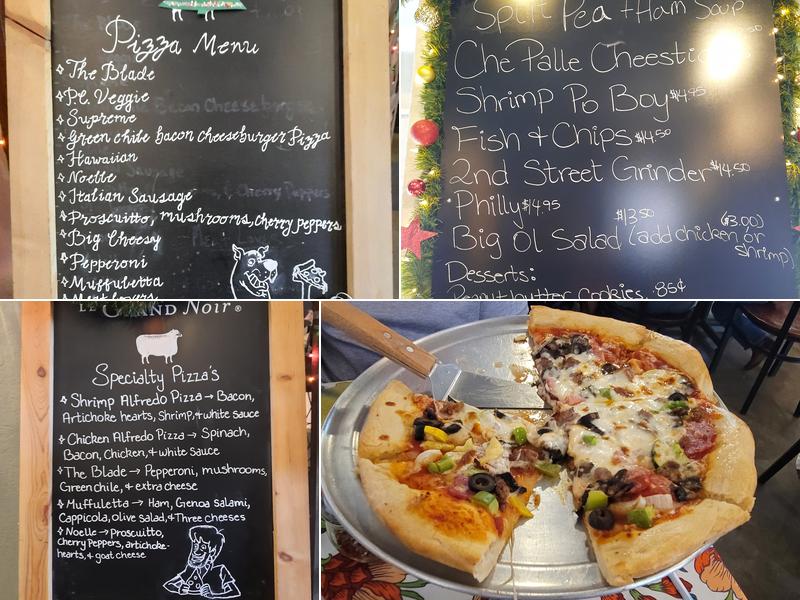 Pizza Menu
The Blade
Pl. Veggie
Supreme
Green chile bacon cheeseburger Pizza
Hawaiian
Noelle
Italian Sausage
Proscuitto, mushrooms, cherry peppers
Big Cheesy
Pepperoni
Muffuletta
Split Pea + Ham Soup
Che Palle Cheestic
Shrimp Po Boy $14.95
Fish & Chips $14.50
2nd Street Grinder $14.50
Philly $14.95
$13.50 ($3.00)
Big Ol Salad (add chicken or
shrimp)
Desserts:
Peanut butter Cookies .85¢
Le Grand Noir®
Specialty Pizza's
Shrimp Alfredo Pizza → Bacon,
Artichoke hearts, Shrimp, & white sauce
Chicken Alfredo Pizza → Spinach,
Bacon, Chicken, & white sauce
The Blade → Pepperoni, mushrooms,
Green chile, & extra cheese
Muffuletta → Ham, Genoa salami,
Cappicola, olive salad, & Three cheeses
Noelle → Proscuitto,
cherry Peppers, artichoke-
hearts, & goat cheese